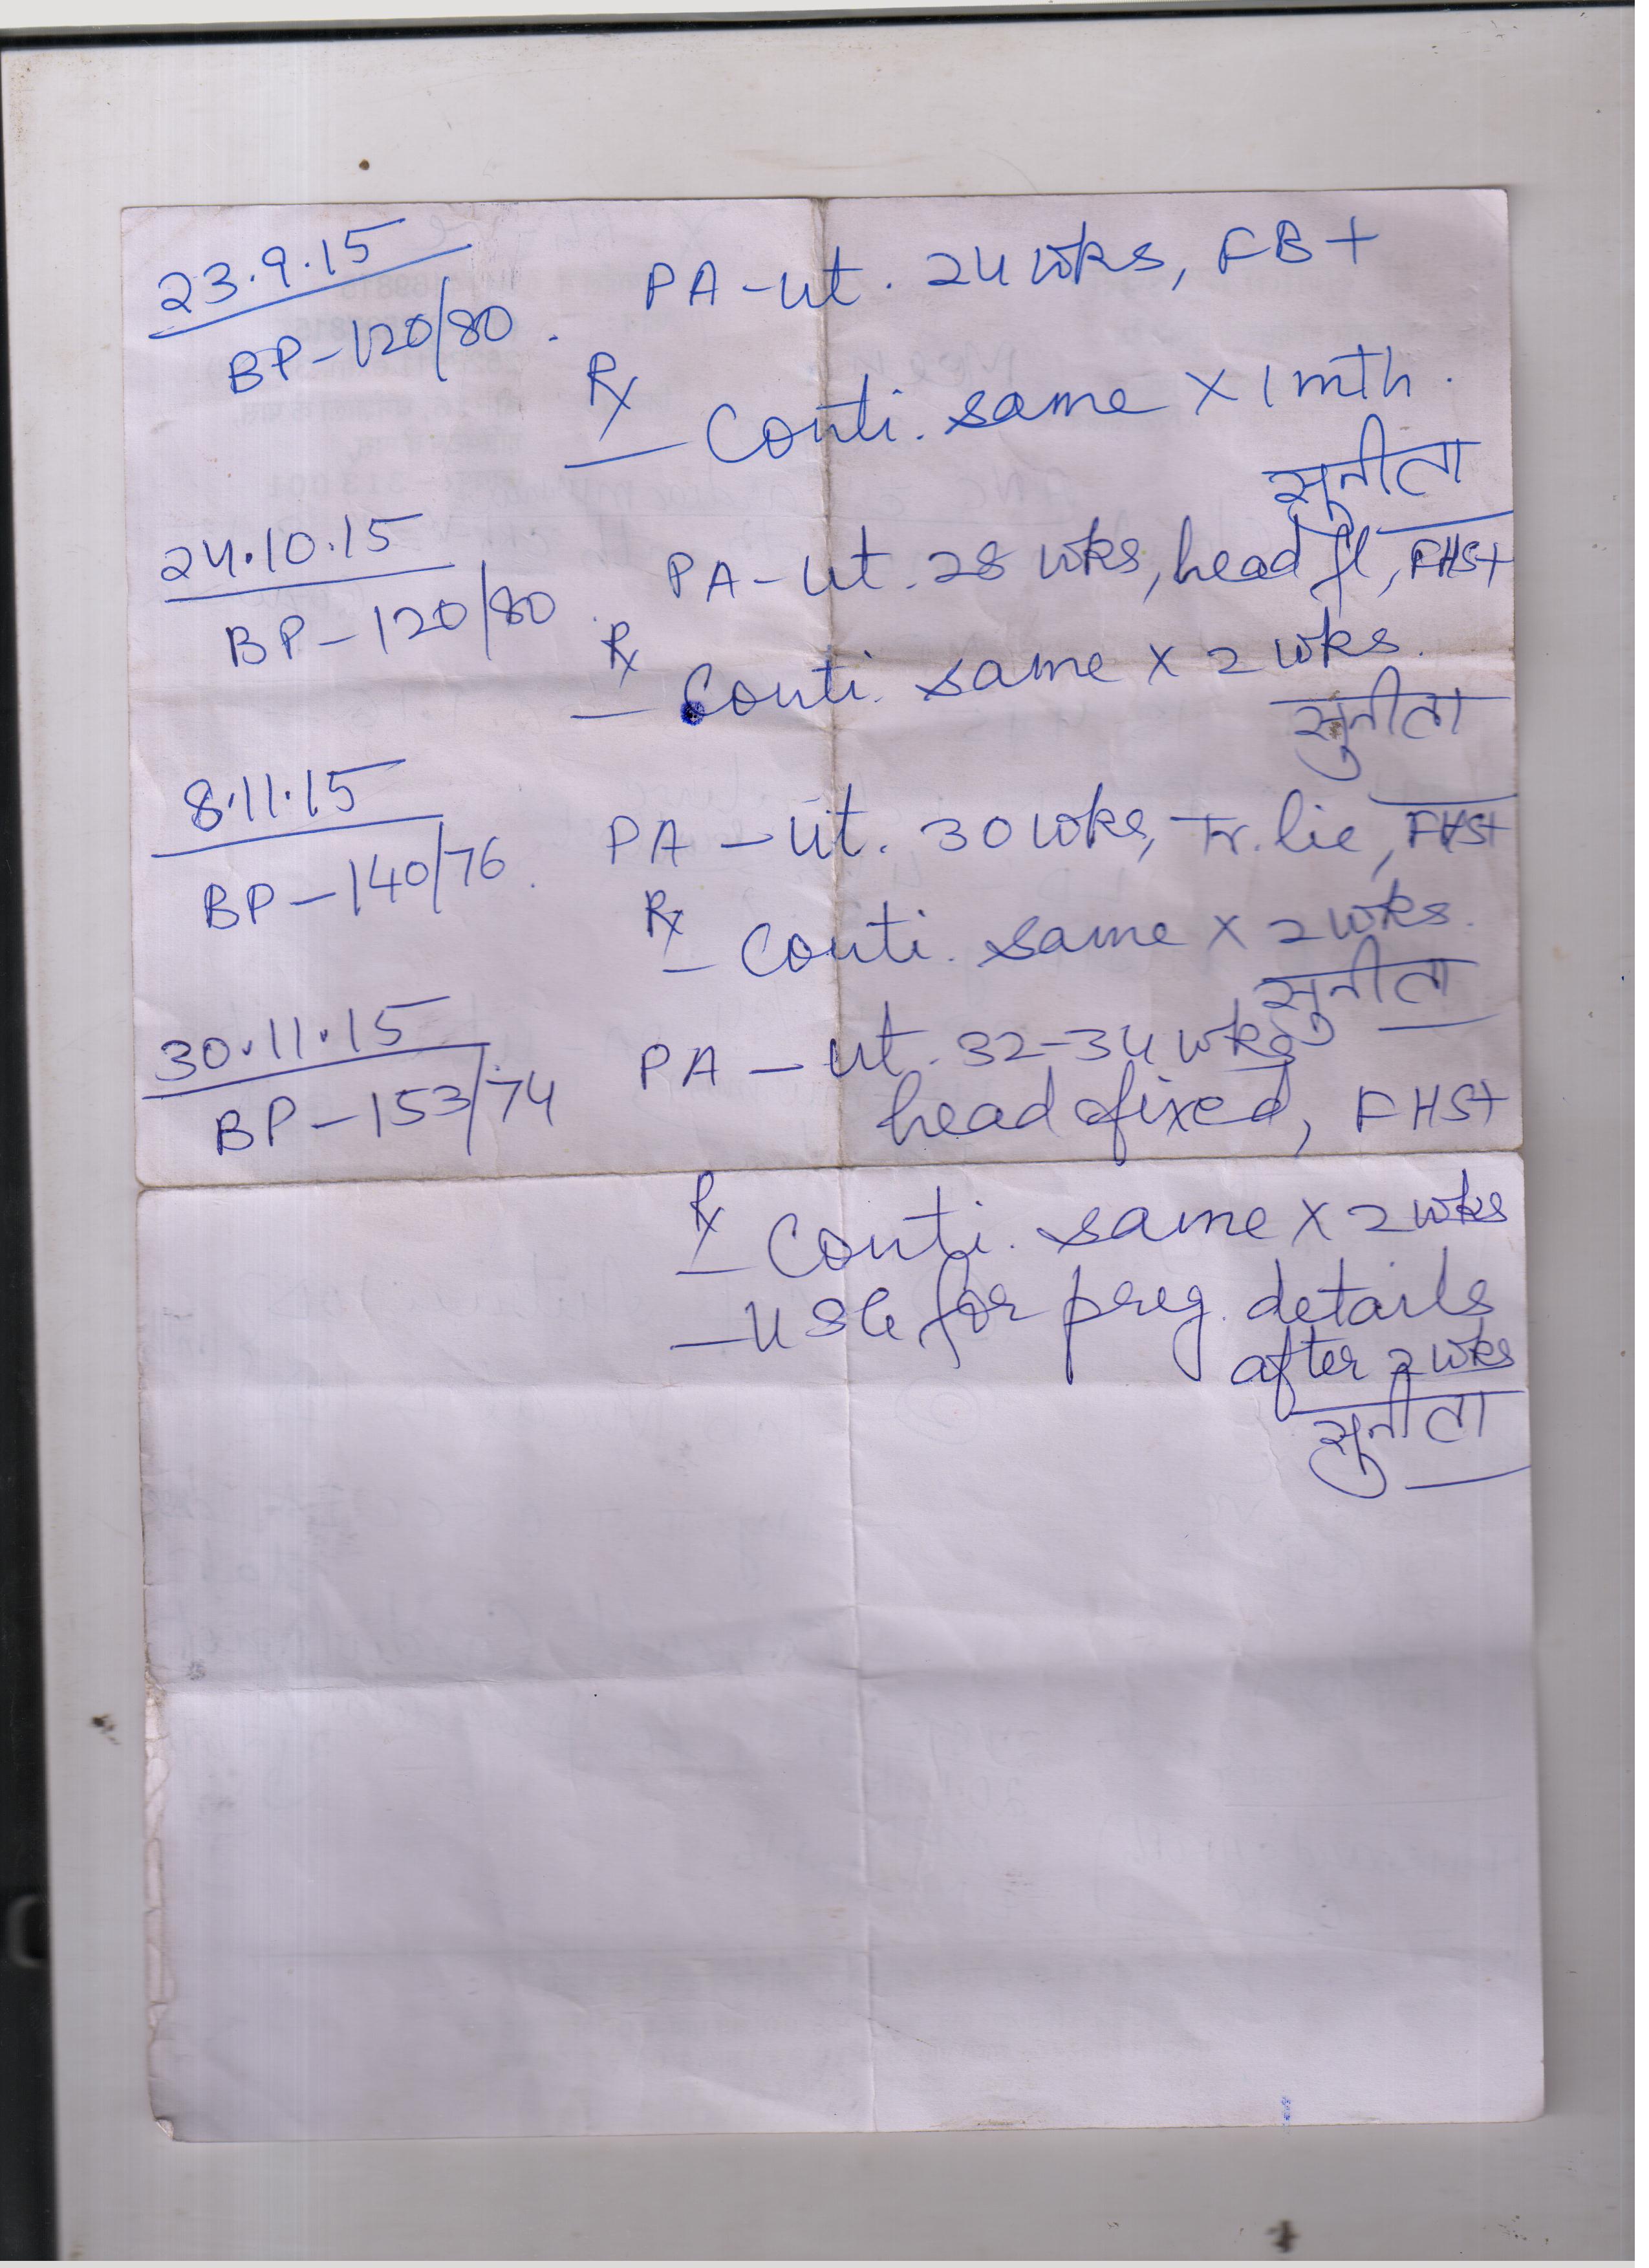 23.9.15
PA - ut. 24 wks, FB +
BP - 120/80.
Rx
- Conti. same x 1 mth.
सुनीता
24.10.15
PA - ut. 28 wks, head fl, FHS+
BP - 120/80.
Rx
- Conti. same x 2 wks.
सुनीता
8.11.15
PA - ut. 30 wks, Tr. lie, FHS+
BP - 140/76.
Rx
- Conti. same x 2 wks.
सुनीता
30.11.15
PA - ut. 32-34 wks
BP - 153/74
head fixed, FHS+
Rx
- Conti. same x 2 wks
- USG for preg. details
after 2 wks
सुनीता